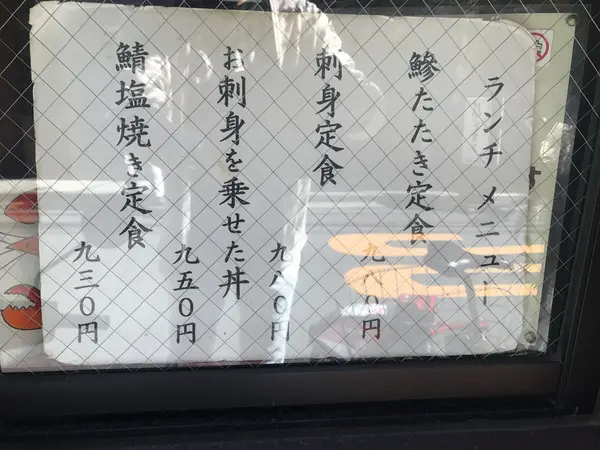 ランチメニュー
鰺たたき定食
九 〇円
刺身定食
九八〇円
お刺身を乗せた丼
九五〇円
鯖塩焼き定食
九三〇円